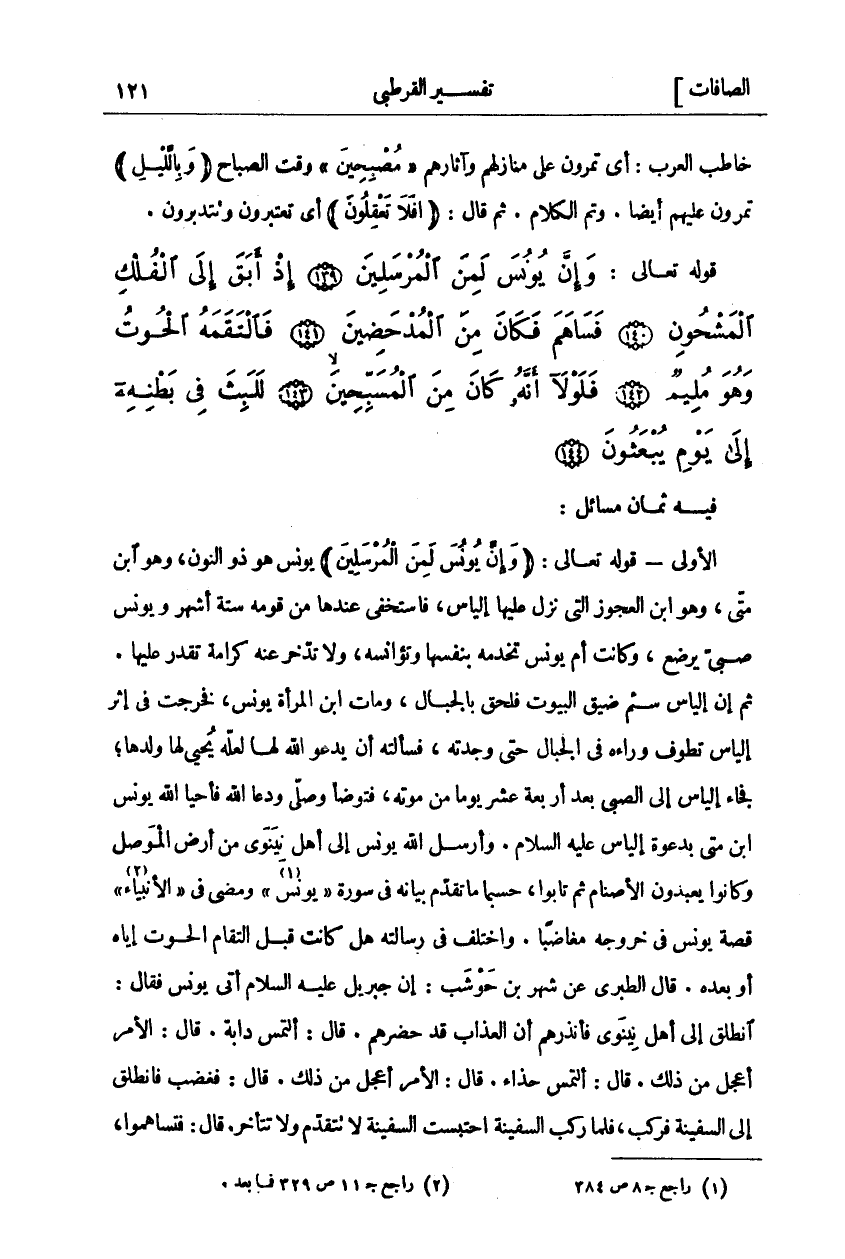 الصافات ] تفسير القرطبى ١٢١
خاطب العرب : أى تمرون على منازلهم وآثارهم « مُصْبِحِينَ » وقت الصباح ﴿ وَبِاللَّيْلِ ﴾
تمرون عليهم أيضا . وتم الكلام . ثم قال : ﴿ أَفَلَا تَعْقِلُونَ ﴾ أى تعتبرون وتتدبرون .
قوله تعالى : وَإِنَّ يُونُسَ لَمِنَ ٱلْمُرْسَلِينَ ﴿١٣٩﴾ إِذْ أَبَقَ إِلَى ٱلْفُلْكِ
ٱلْمَشْحُونِ ﴿١٤٠﴾ فَسَاهَمَ فَكَانَ مِنَ ٱلْمُدْحَضِينَ ﴿١٤١﴾ فَٱلْتَقَمَهُ ٱلْحُوتُ
وَهُوَ مُلِيمٌ ﴿١٤٢﴾ فَلَوْلَآ أَنَّهُۥ كَانَ مِنَ ٱلْمُسَبِّحِينَ ﴿١٤٣﴾ لَلَبِثَ فِى بَطْنِهِۦٓ
إِلَىٰ يَوْمِ يُبْعَثُونَ ﴿١٤٤﴾
فيه ثمان مسائل :
الأولى — قوله تعالى : ﴿ وَإِنَّ يُونُسَ لَمِنَ الْمُرْسَلِينَ ﴾ يونس هو ذو النون، وهو ٱبن
متّى ، وهو ابن العجوز التى نزل عليها إلياس، فاستخفى عندها من قومه ستة أشهر و يونس
صبىّ يرضع ، وكانت أم يونس تخدمه بنفسها وتؤانسه، ولا تدّخر عنه كرامة تقدر عليها .
ثم إن إلياس سئم ضيق البيوت فلحق بالجبال ، ومات ابن المرأة يونس، فخرجت فى إثر
إلياس تطوف وراءه فى الجبال حتى وجدته ، فسألته أن يدعو الله لها لعلّه يُحيى لها ولدها؛
فجاء إلياس إلى الصبى بعد أربعة عشر يوما من موته، فتوضأ وصلّى ودعا الله فأحيا الله يونس
ابن متى بدعوة إلياس عليه السلام . وأرسل الله يونس إلى أهل نِينَوَى من أرض الْمَوصل
وكانوا يعبدون الأصنام ثم تابوا، حسبما تقدّم بيانه فى سورة « يونس(١) » ومضى فى « الأنبياء(٢) »
قصة يونس فى خروجه مغاضبًا . واختلف فى رسالته هل كانت قبل التقام الحوت إياه
أو بعده . قال الطبرى عن شهر بن حَوْشَب : إن جبريل عليه السلام أتى يونس فقال :
ٱنطلق إلى أهل نِينَوى فأنذرهم أن العذاب قد حضرهم . قال : ألتمس دابة . قال : الأمر
أعجل من ذلك . قال : ألتمس حذاء . قال : الأمر أعجل من ذلك . قال : فغضب فانطلق
إلى السفينة فركب ، فلما ركب السفينة احتبست السفينة لا تتقدّم ولا تتأخر. قال : فتساهموا،
(١) راجع جـ ٨ ص ٣٨٤ (٢) راجع جـ ١١ ص ٣٢٩ فما بعد .